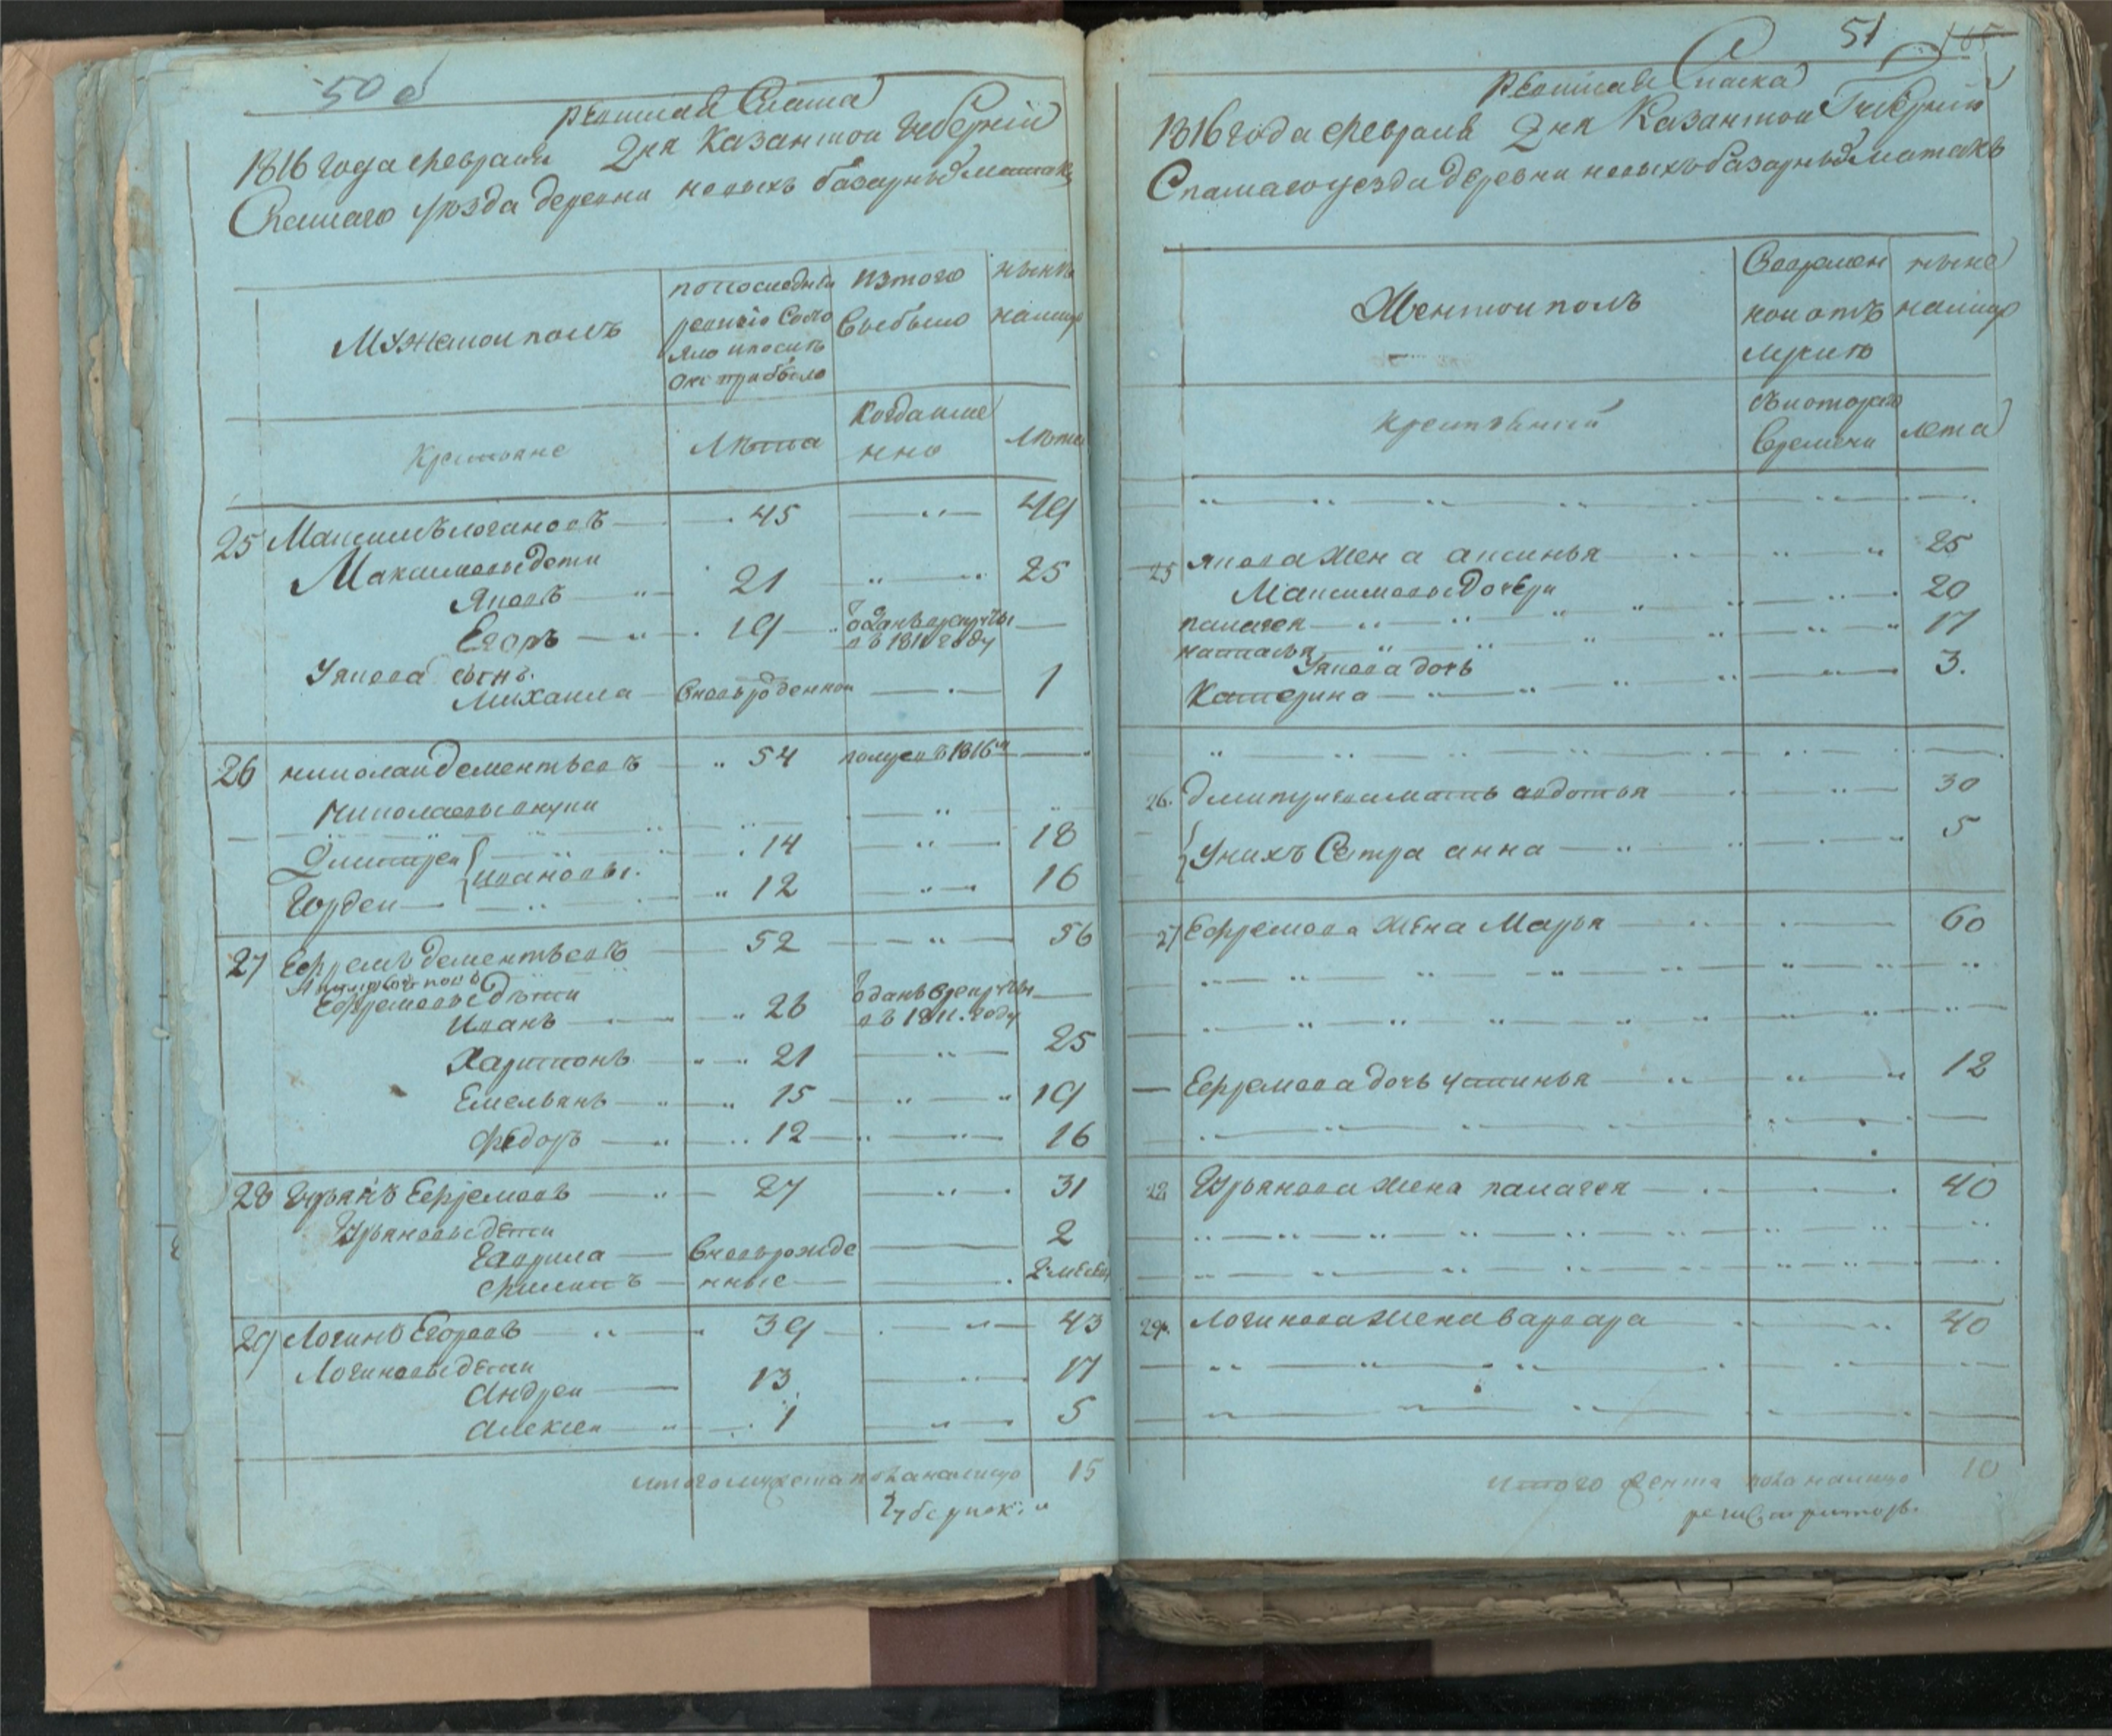 50 об
ревиская Скаска
1816 года февраля 2 дня Казанской Губернии
Спаскаго уезда деревни новыхъ базарныхъ матакъ
Мужеской полъ
по последней
ревизіи Состо
яло и после
оне прибыло
изтого
выбыло
ныне
налицо
Крестьяне
Лѣта
Когда име
нно
Лѣта
25 Максимъ логиновъ 45 49
Максимовы дети
Яковъ 21 25
Егоръ 19 отданъ врекруты
въ 1811 году
Уякова сынъ
Михаила вновьрожденной 1
26 николаи дементьевъ 54 померъ въ 1816м
Николаевы внуки
Дмитреи 14 18
ивановы
Гордеи 12 16
27 Ефремъ дементьевъ 52 56
Ефремовы дѣти
Иванъ 26 отданъ врекруты
въ 1811 году
Харитонъ 21 25
Емельянъ 15 19
Федоръ 12 16
28 Гурьянъ Ефремовъ 27 31
Гурьяновы дети
Гаврила вновьрожде 2
Филипъ нные 2 месец
29 Логинъ Егоровъ 39 43
Логиновы дети
Андреи 13 17
Алексеи 1 5
итого мужеска пола налицо 15
Губернскіи
51
ревиская Скаска
1816 года февраля 2 дня Казанской Губернии
Спаскаго уезда деревни новыхъ базарныхъ матакъ
Женской полъ
Вовремен
ной отъ
лучке
ныне
налицо
крестьянки
съкотораго
времени
лета
25 якова жена аксинья 25
Максимовы дочери
палагея 20
наталья 17
Уякова дочь
Катерина 3.
26. дмитриева мать авдотья 30
Уних Сестра анна 5
27 Ефремова жена Марья 60
Ефремова дочь устинья 12
28 Гурьянова жена палагея 40
29. Логинова жена варвара 40
итого женска пола налицо 10
регистраторъ.